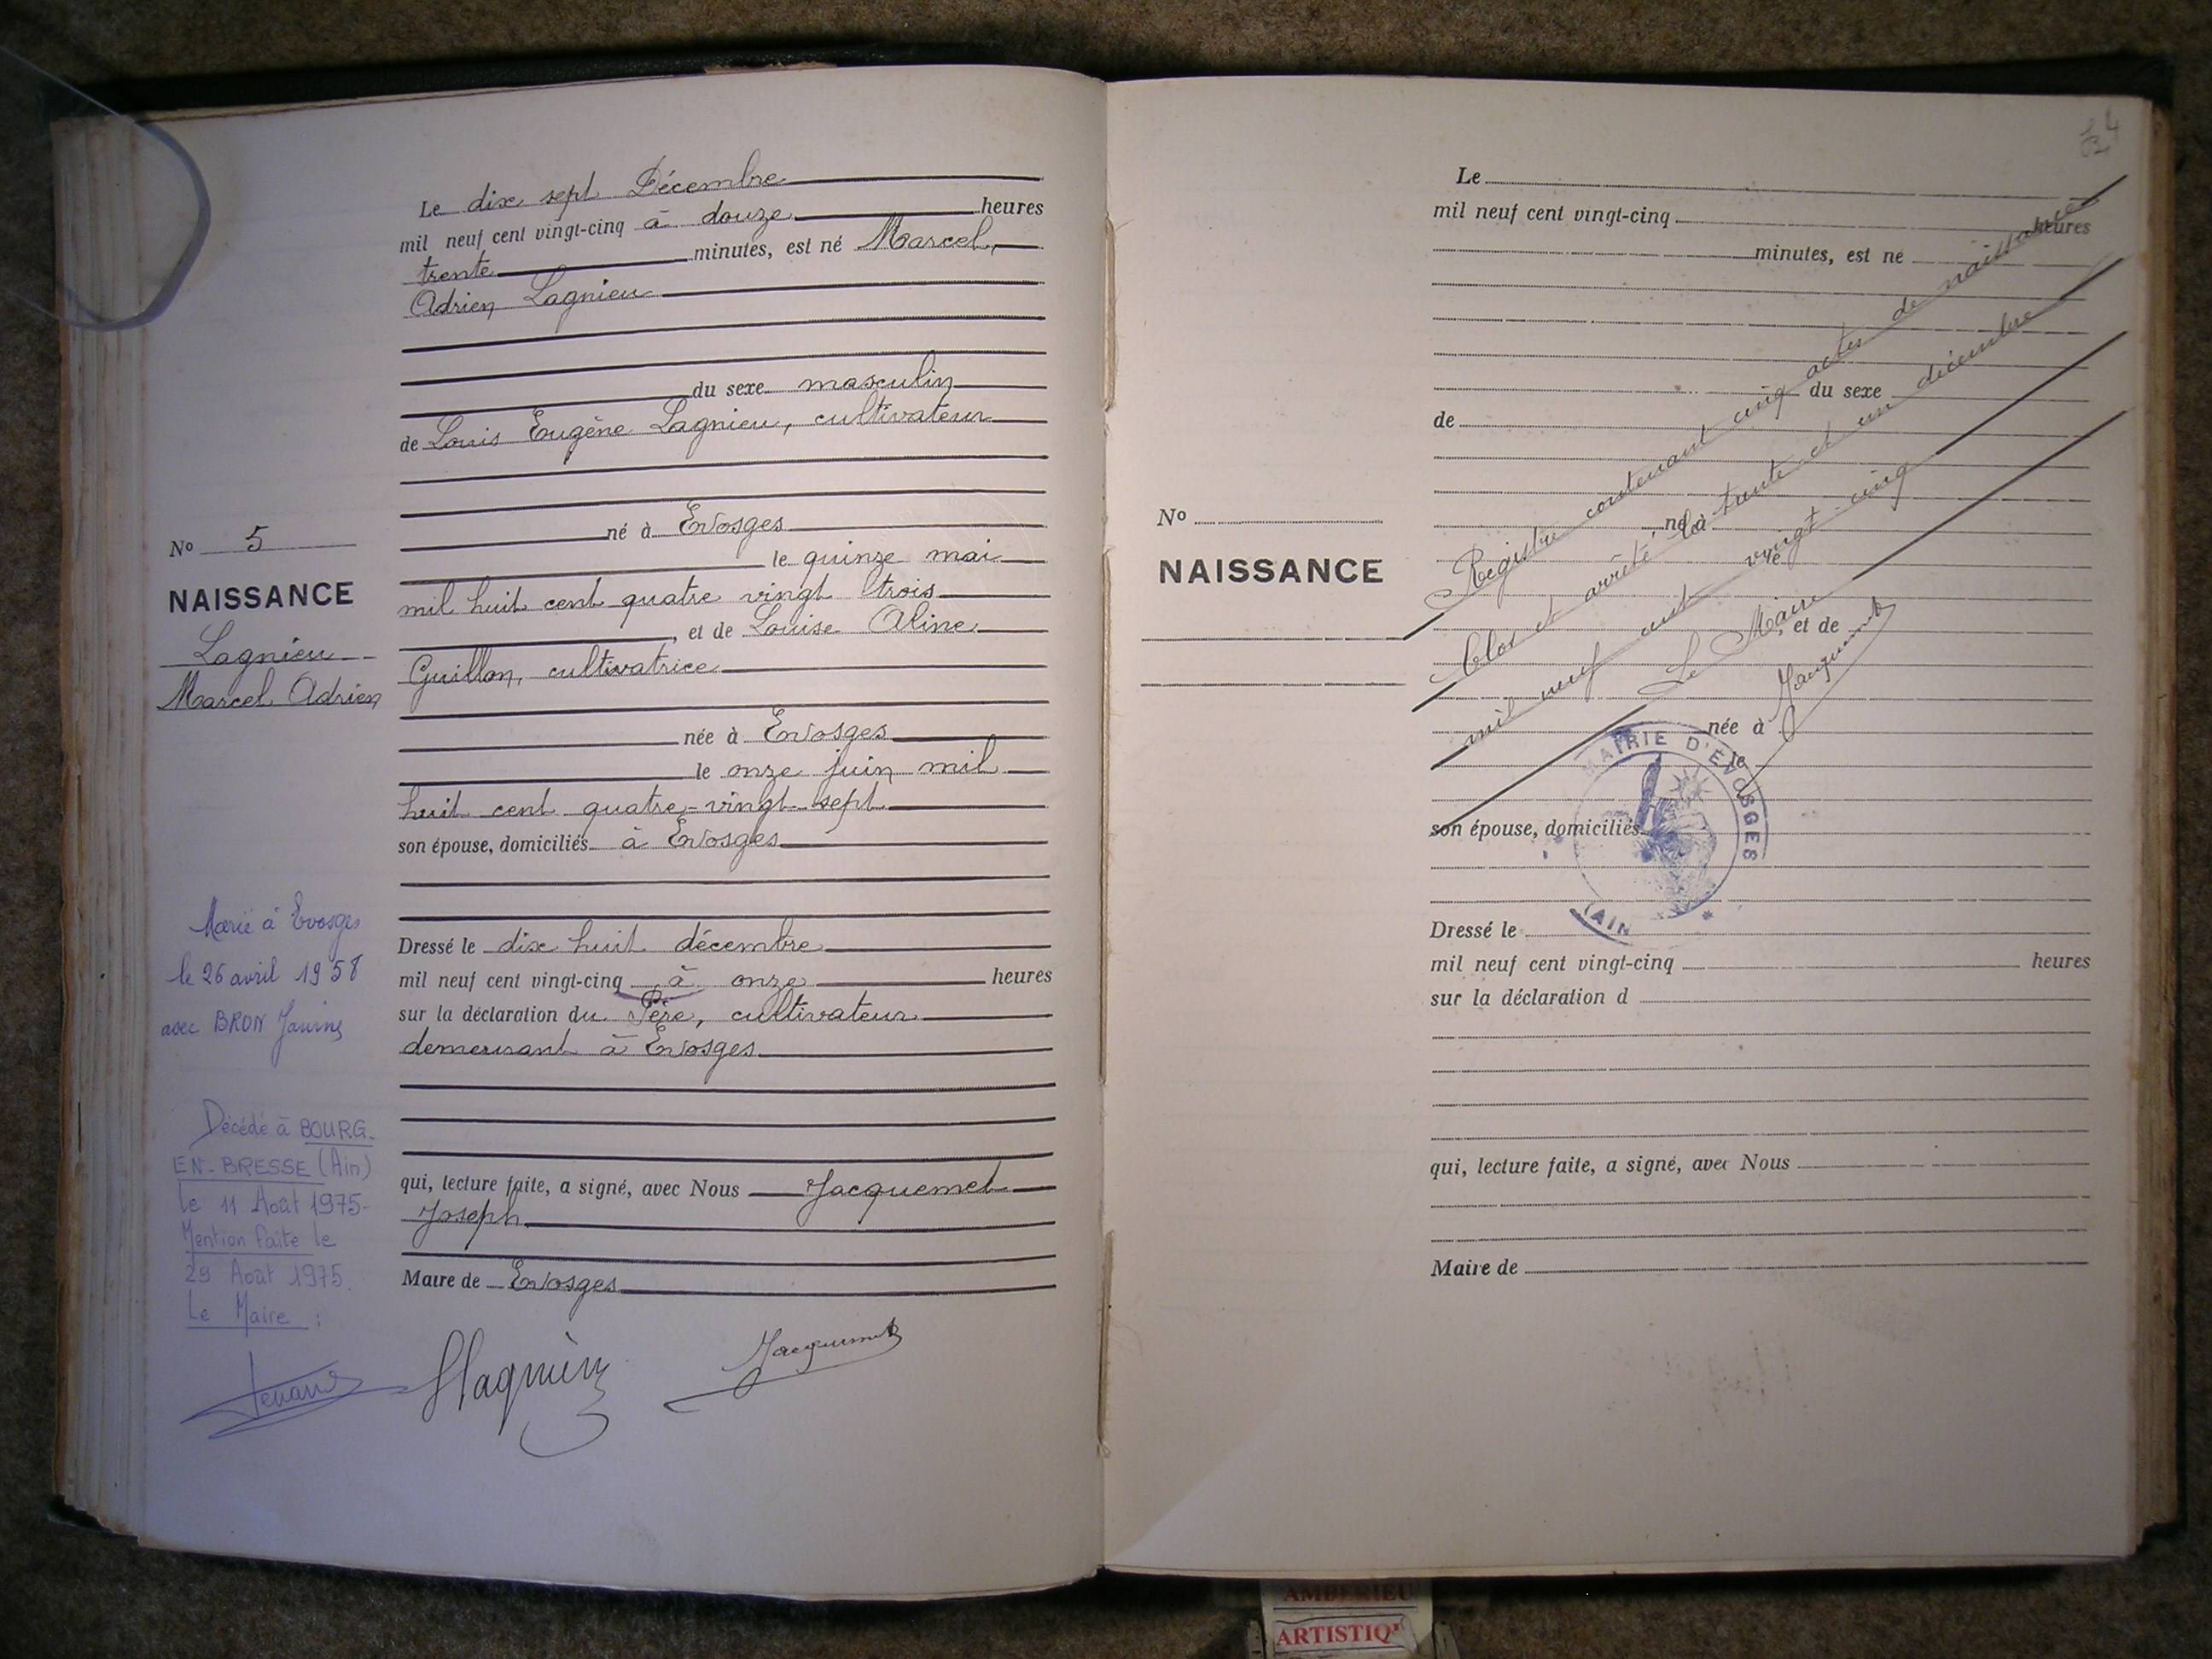 Le dix sept Décembre
mil neuf cent vingt-cinq à douze heures
trente minutes, est né Marcel,
Adrien Lagnieu
du sexe masculin
de Louis Eugène Lagnieu, cultivateur
né à Evosges
le quinze mai
mil huit cent quatre vingt trois
, et de Louise Aline
Guillon, cultivatrice
née à Evosges
le onze juin mil
huit cent quatre-vingt-sept
son épouse, domiciliés à Evosges
Dressé le dix huit décembre
mil neuf cent vingt-cinq à onze heures
sur la déclaration du Père, cultivateur
demeurant à Evosges
qui, lecture faite, a signé, avec Nous Jacquemet
Joseph
Maire de Evosges
Jacquemet
No 5
NAISSANCE
Lagnieu
Marcel Adrien
Marié à Evosges
le 26 avril 1958
avec BRON
Décédé à BOURG-
EN-BRESSE (Ain)
le 11 Août 1975-
Mention faite le
29 Août 1975.
Le Maire :
Le
mil neuf cent vingt-cinq heures
minutes, est né
du sexe
de
né à
le
, et de
née à
le
son épouse, domiciliés
Dressé le
mil neuf cent vingt-cinq heures
sur la déclaration d
qui, lecture faite, a signé, avec Nous
Maire de
No
NAISSANCE
Registre contenant cinq actes de naissance
Clos et arrêté le trente et un décembre
mil neuf cent vingt-cinq
Le Maire
Jacquemet
MAIRIE D'ÉVOSGES
(AIN
AMBERIEU
ARTISTIQ